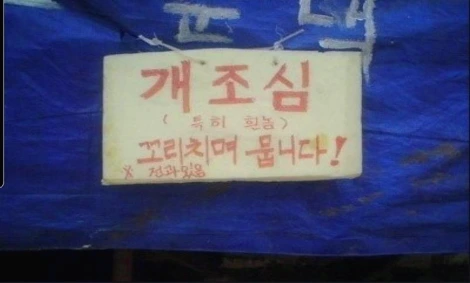 개조심
(특히 흰놈)
꼬리치며 뭅니다!
※ 전과있음